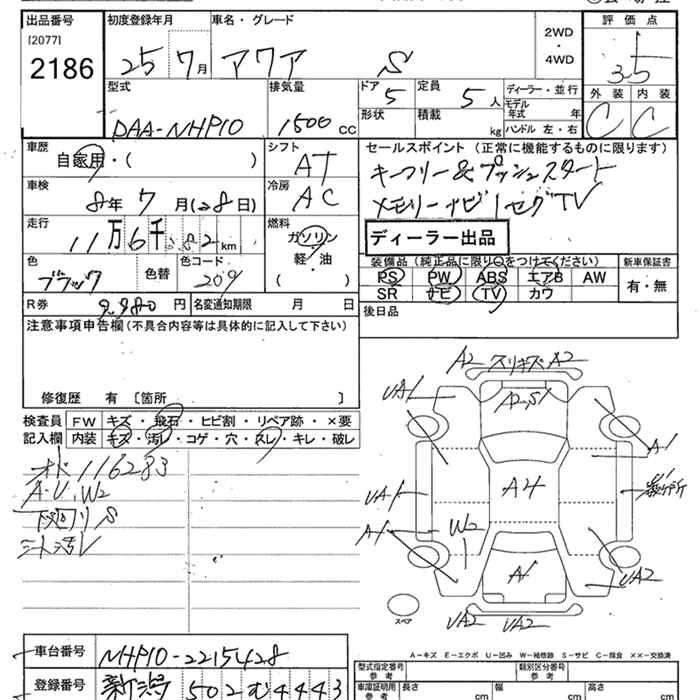 出品番号 初度登録年月 車名・グレード 2WD・4WD 評価点
[2077]
2186 25 7月 アクア S 3.5
型式 排気量 ドア 5 定員 5人 ディーラー・並行 外装 内装
DAA-NHP10 1500cc 形状 積載 kg モデル年式 年 C C
ハンドル 左・右
車歴 シフト セールスポイント(正常に機能するものに限ります)
自家用・( ) AT キーフリー&プッシュスタート
車検 冷房 メモリーナビ 1セグTV
8年 7月(28日) AC
走行 燃料 ディーラー出品
11万6千282km ガソリン
軽・油
( )
色 色替 色コード 装備品(純正品に限り○をつけてください) 新車保証書
ブラック 209 PS PW ABS エアB AW 有・無
SR ナビ TV カワ
R券 9,980円 名変通知期限 月 日 後日品
注意事項申告欄(不具合内容等は具体的に記入して下さい)
修復歴 有 〔箇所 〕
検査員記入欄 FW キズ・飛石・ヒビ割・リペア跡・×要
内装 キズ・汚れ・コゲ・穴・スレ・キレ・破レ
オド116283
A・U、W2
下廻りS
シート汚レ
A2 スリキズ A2
UA1 A2,S1
A1
UA1 A4
A1 W2
A1 UA2
UA2 UA2
スペア
A-キズ E-エクボ U-凹み W-補修跡 S-サビ C-腐食 ××-交換済
車台番号 NHP10-2215428 型式指定番号 参考 類別区分番号 参考
登録番号 新潟 502 む 4443 車庫証明用 参考 長さ cm 幅 cm 高さ cm